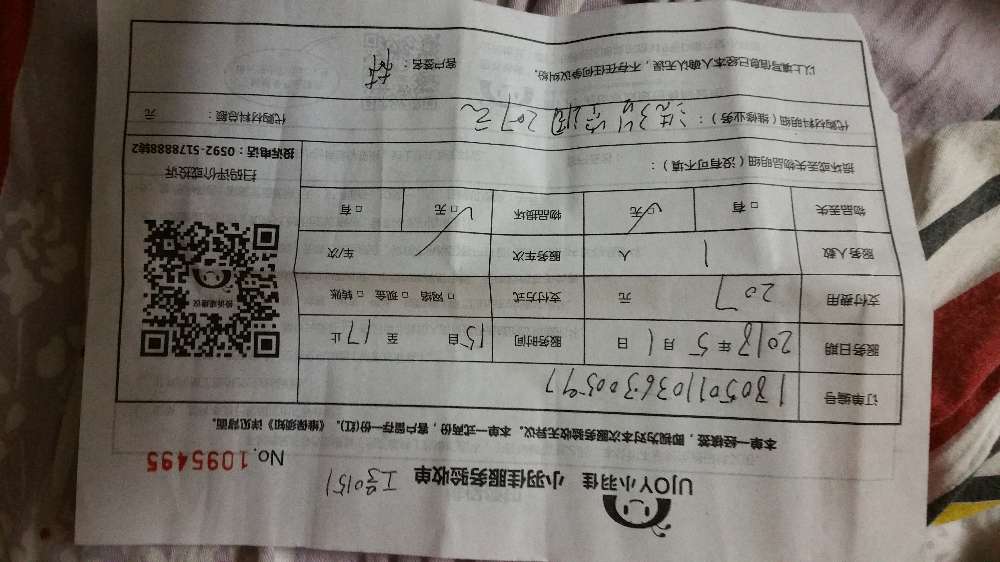 UJOY小羽佳 小羽佳服务验收单 工号0151
No.1095495
本单一经续签，即视为对本次服务验收无异议。本单一式两份，客户留存一份(红)。《维保须知》详见背面。
订单编号 180501103630059
服务日期 2018年5月1日 服务时间 自15 至17止
支付费用 207元 支付方式 □网络 □现金 □转账
服务人数 1人 服务车次 车/次
物品丢失 □有 □无 物品损坏 □无 □有
损坏或丢失物品明细（没有可不填）：
代购材料明细（维修业务）：207元 代购材料总额： 元
以上填写信息已经本人确认无误，不存在任何争议纠纷。 客户签名：林
投诉建议
扫码评价或投诉
投诉电话：0592-5178888转2